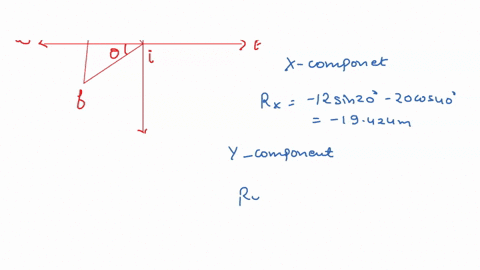 E
θ
i
f
X-componet
Rx = -12 sin20° - 20 cos40°
= -19.424m
Y-component
R